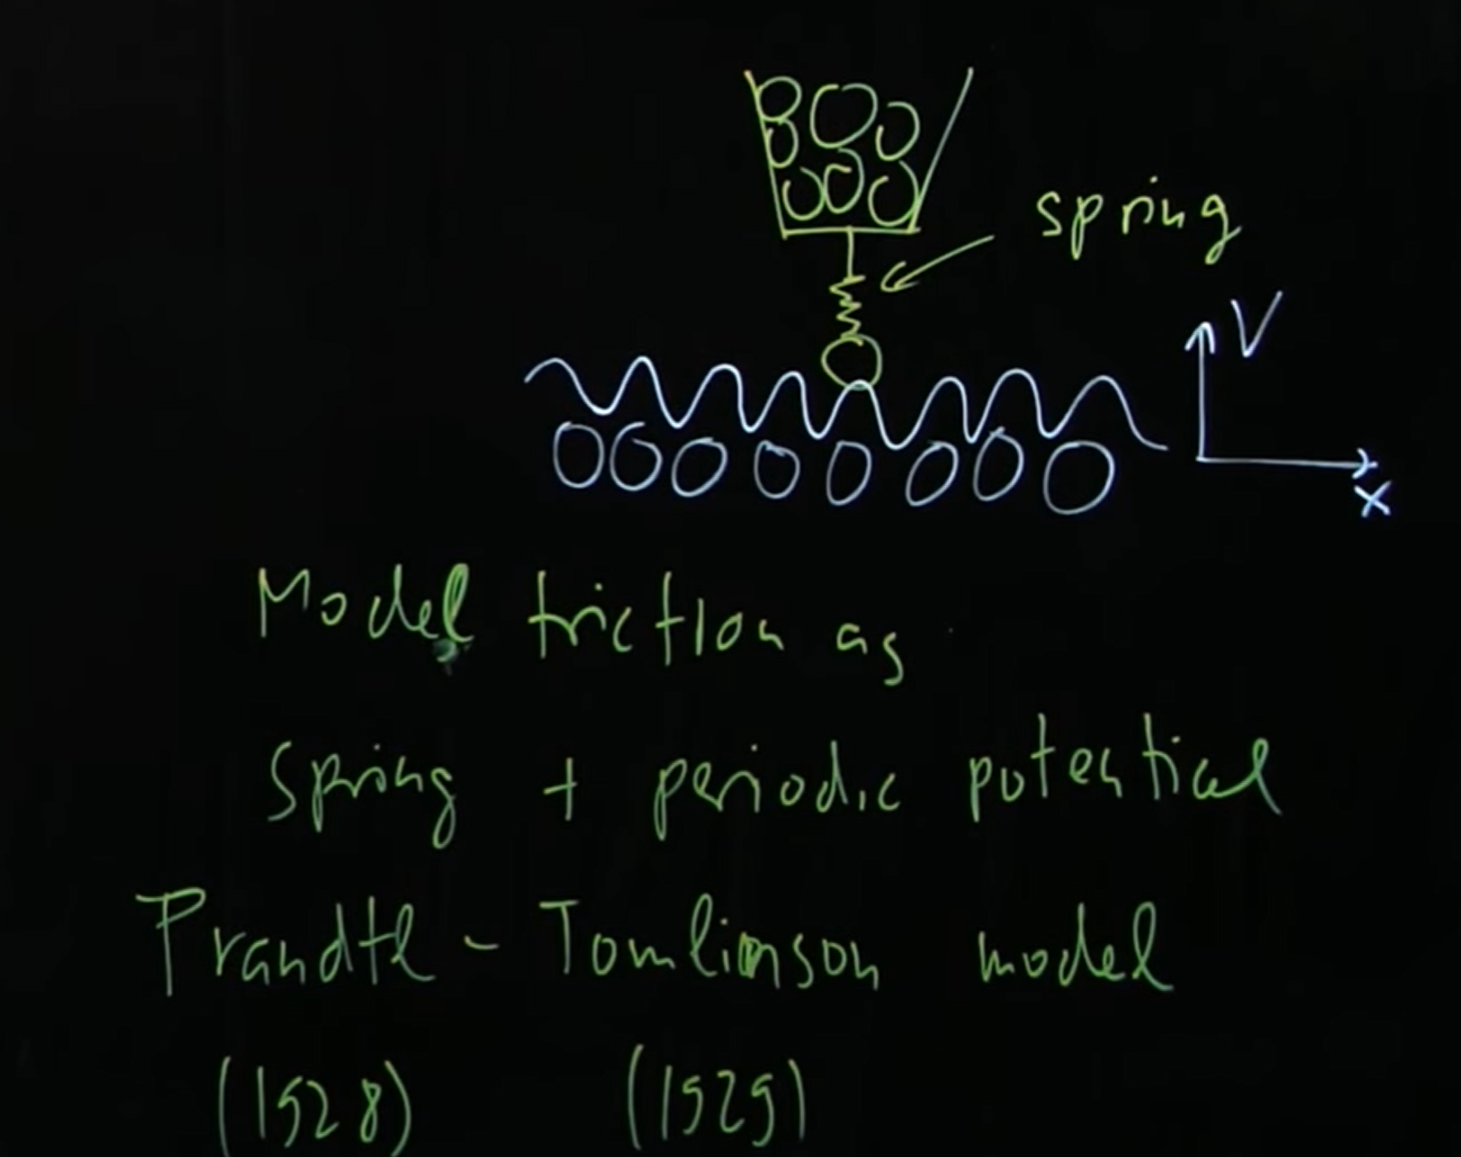 spring
V
x
Model friction as
spring + periodic potential
Prandtl - Tomlinson model
(1928) (1929)